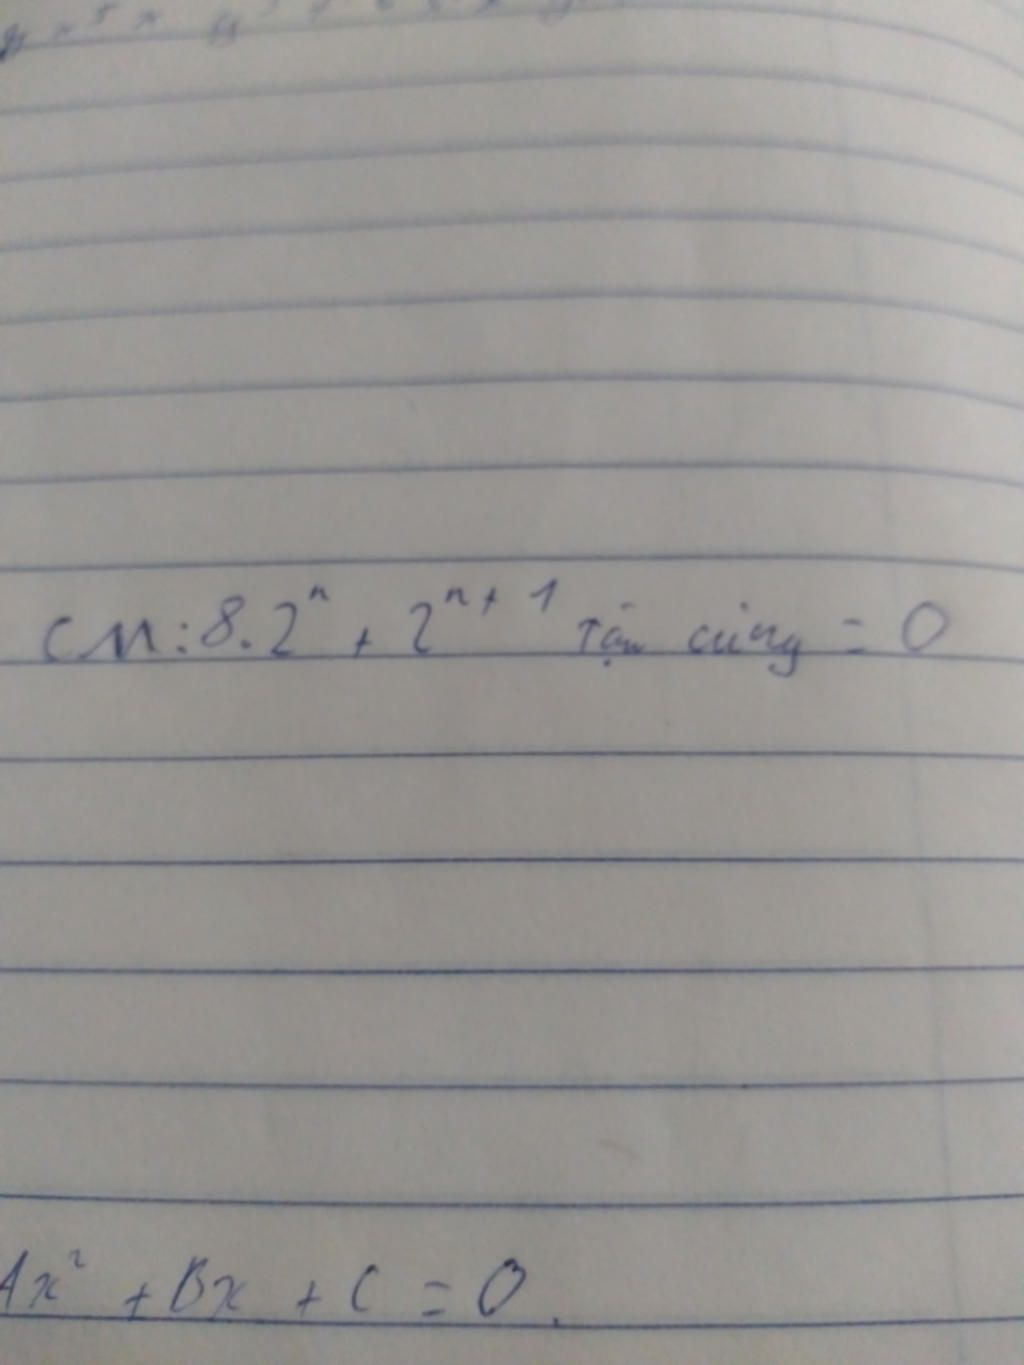 CM: 8.2ⁿ + 2ⁿ⁺¹ Tận cùng = 0
Ax² + Bx + C = 0.